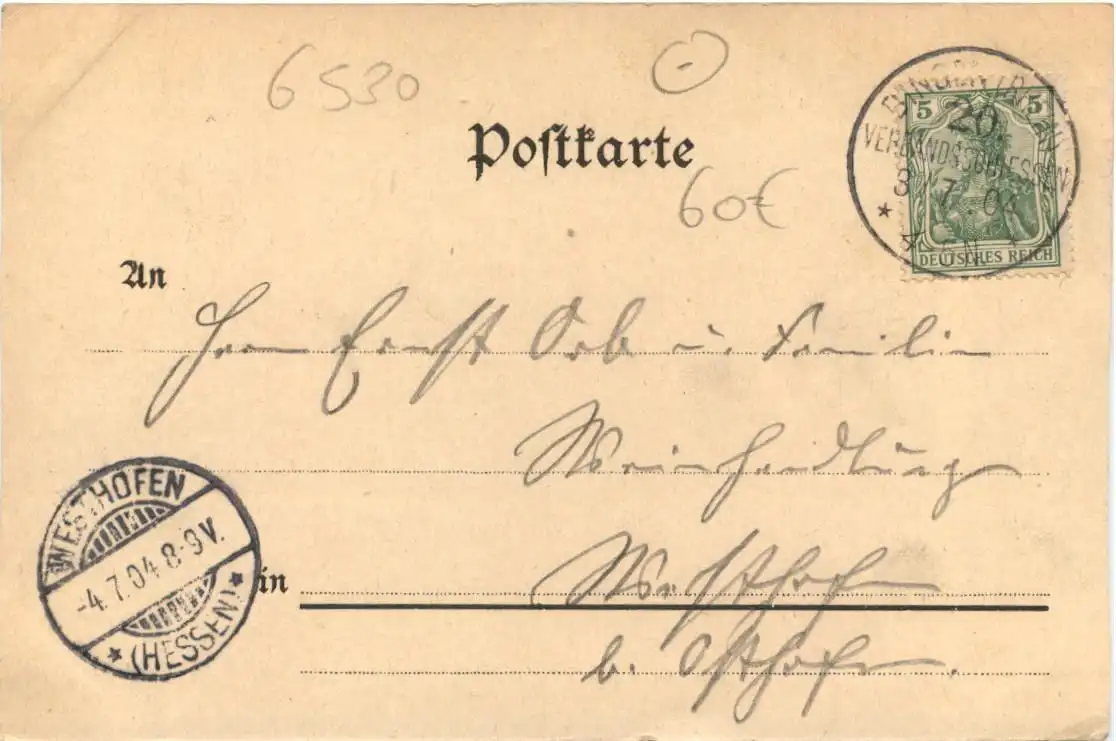 6530
Postkarte
60€
5 5
20.
VERBANDSSCHIESSEN
3 7.04
* 4-5 N.
DEUTSCHES REICH
An
Herrn Ernst Orb u. Familie
Weinhandlung
WESTHOFEN
-4.7.04 8-9V.
* (HESSEN) *
in Westhofen
b. Osthofen.